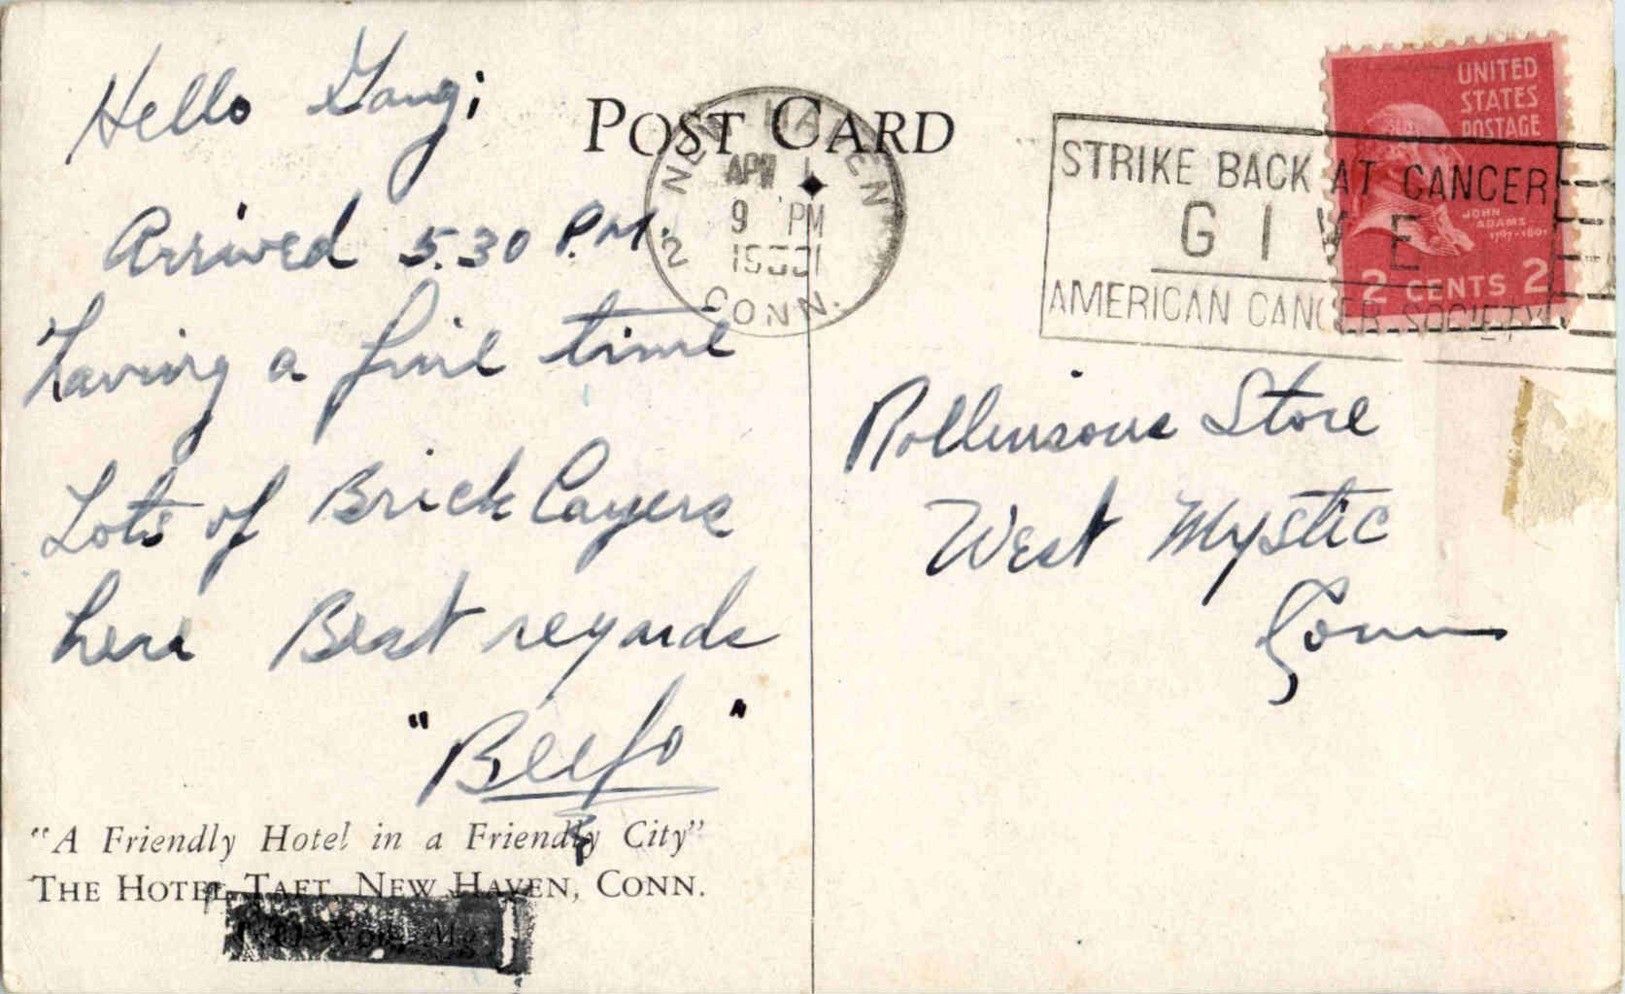 Hello Gang;
Arrived 5.30 P.M.
having a fine time
Lots of Brick Layers
here Best regards
"Beefo"
"A Friendly Hotel in a Friendly City"
THE HOTEL TAFT, NEW HAVEN, CONN.
POST CARD
NEW HAVEN
APR 1
9 PM
CONN. 2
STRIKE BACK AT CANCER
GIVE
AMERICAN CANCER SOCIETY
UNITED
STATES
POSTAGE
JOHN
ADAMS
1797-1801
2 CENTS 2
Rollinsons Store
West Mystic
Conn